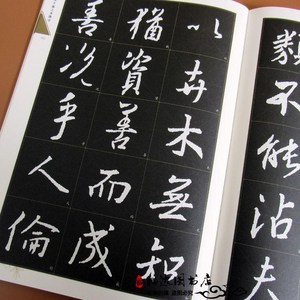 類不能沾夫
以卉木無知
猶資善而成
善况乎人倫